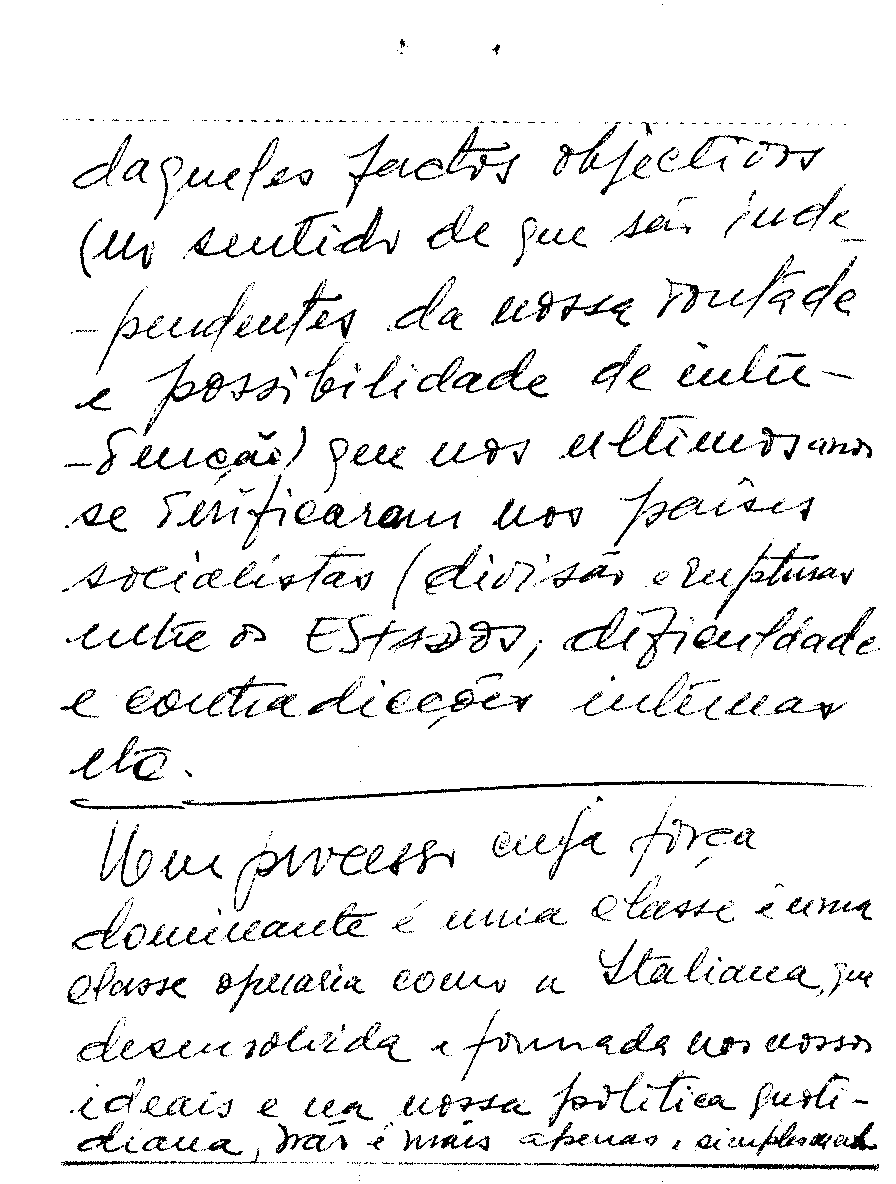 daqueles factos objectivos
(no sentido de que são inde-
-pendentes da nossa vontade
e possibilidade de inter-
-venção) que nos ultimos anos
se verificaram nos países
socialistas (divisão e rupturas
entre os ESTADOS, dificuldade
e contradicções internas
etc.
Num processo cuja força
dominante é uma classe é uma
classe operaria como a Italiana, que
desenvolvida e formada nos nossos
ideais e na nossa politica quoti-
diana, não é mais apenas e simplesmente